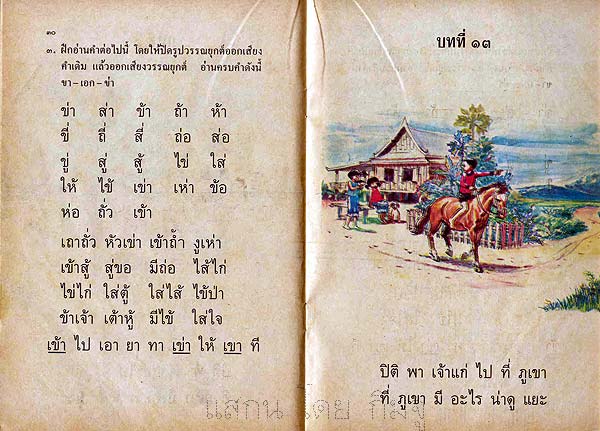 ๓๐
๓. ฝึกอ่านคำต่อไปนี้ โดยให้ปิดรูปวรรณยุกต์ออกเสียง
คำเดิม แล้วออกเสียงวรรณยุกต์ อ่านครบคำดังนี้
ขา-เอก-ข่า
ข่า ส่า ข้า ถ้า ห้า
ขี่ ถี่ สี่ ถ่อ ส่อ
ขู่ สู่ สู้ ไข่ ใส่
ให้ ไข้ เข่า เห่า ข้อ
ห่อ ถั่ว เข้า
เถาถั่ว หัวเข่า เข้าถ้ำ งูเห่า
เข้าสู้ สู่ขอ มีถ่อ ไส้ไก่
ไข่ไก่ ใส่ตู้ ใส่ไส้ ไข้ป่า
ข้าเจ้า เต้าหู้ มีไข้ ใส่ใจ
เข้า ไป เอา ยา ทา เข่า ให้ เขา ที
บทที่ ๑๓
ปิติ พา เจ้าแก่ ไป ที่ ภูเขา
ที่ ภูเขา มี อะไร น่าดู แยะ
แสกน โดย กิมจู